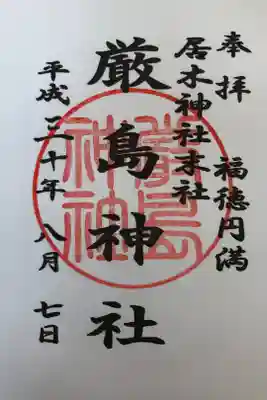 奉拝　福徳円満
居木神社末社
厳島神社
平成三十年八月七日
嚴島神社